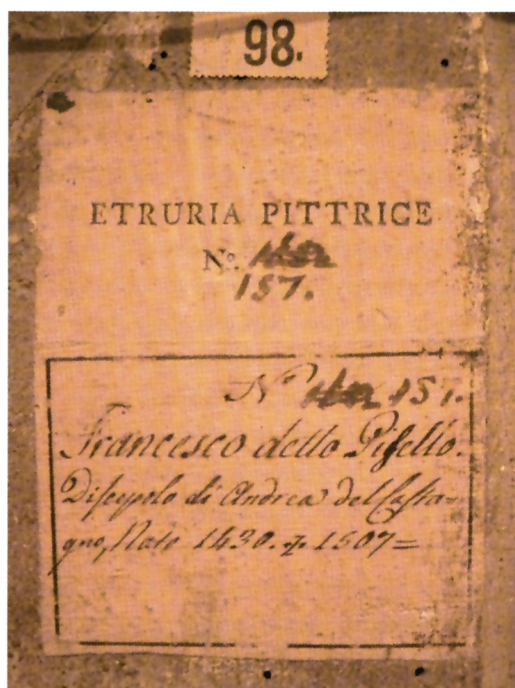 98.
ETRURIA PITTRICE
Nº.
157.
Nº 157.
Francesco detto Piſello.
Diſcepolo di Andrea del Caſta=
gno, Nato 1430. ‡ 1507=